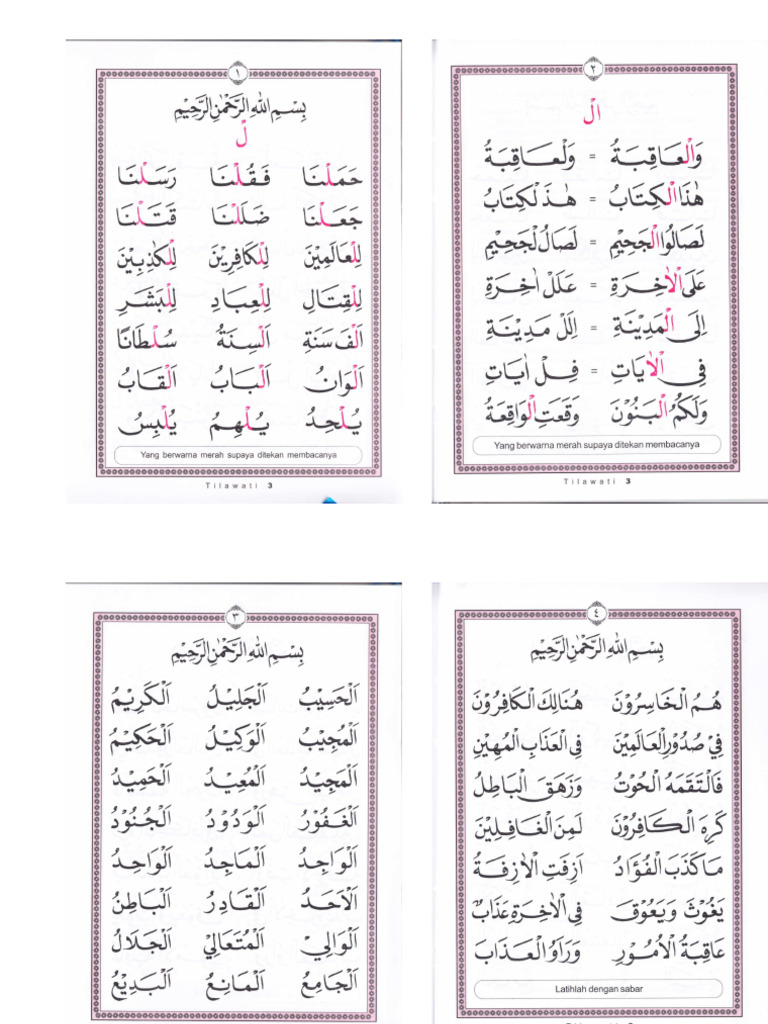 ١
بِسْمِ اللهِ الرَّحْمٰنِ الرَّحِيْمِ
لْ
حَمَلْنَا فَقُلْنَا رَسَلْنَا
جَعَلْنَا ضَلَلْنَا قَتَلْنَا
لِلْعَالَمِيْنَ لِلْكَافِرِيْنَ لِلْكٰذِبِيْنَ
لِلْقِتَالِ لِلْعِبَادِ لِلْبَشَرِ
اَلْفَ سَنَةٍ اَلْسِنَةُ سُلْطَانًا
اَلْوَانُ اَلْبَابُ اَلْقَابُ
يُلْحِدُ يُلْهِمُ يُلْبِسُ
Yang berwarna merah supaya ditekan membacanya
Tilawati 3
٢
الْ
وَالْعَاقِبَةُ = وَلْعَاقِبَةُ
هٰذَا الْكِتَابُ = هٰذَلْكِتَابُ
لَصَالُوا الْجَحِيْمِ = لَصَالُلْجَحِيْمِ
عَلَى الْاٰخِرَةِ = عَلَلْ اٰخِرَةِ
اِلَى الْمَدِيْنَةِ = اِلَلْ مَدِيْنَةِ
فِى الْاٰيَاتِ = فِلْ اٰيَاتِ
وَلَكُمُ الْبَنُوْنَ وَقَعَتِ الْوَاقِعَةُ
Yang berwarna merah supaya ditekan membacanya
Tilawati 3
٣
بِسْمِ اللهِ الرَّحْمٰنِ الرَّحِيْمِ
اَلْحَسِيْبُ اَلْجَلِيْلُ اَلْكَرِيْمُ
اَلْمُجِيْبُ اَلْوَكِيْلُ اَلْحَكِيْمُ
اَلْمَجِيْدُ اَلْمُعِيْدُ اَلْحَمِيْدُ
اَلْغَفُوْرُ اَلْوَدُوْدُ اَلْجُنُوْدُ
اَلْوَاجِدُ اَلْمَاجِدُ اَلْوَاحِدُ
اَلْاَحَدُ اَلْقَادِرُ اَلْبَاطِنُ
اَلْوَالِيْ اَلْمُتَعَالِيْ اَلْجَلَالُ
اَلْجَامِعُ اَلْمَانِعُ اَلْبَدِيْعُ
٤
بِسْمِ اللهِ الرَّحْمٰنِ الرَّحِيْمِ
هُمُ الْخَاسِرُوْنَ هُنَالِكَ الْكَافِرُوْنَ
فِيْ صُدُوْرِ الْعَالَمِيْنَ فِى الْعَذَابِ الْمُهِيْنِ
فَالْتَقَمَهُ الْحُوْتُ وَزَهَقَ الْبَاطِلُ
كَرِهَ الْكَافِرُوْنَ لَمِنَ الْغَافِلِيْنَ
مَا كَذَبَ الْفُؤَادُ اَزِفَتِ الْاٰزِفَةُ
يَغُوْثَ وَيَعُوْقَ فِى الْاٰخِرَةِ عَذَابٌ
عَاقِبَةُ الْاُمُوْرِ وَرَاَوُ الْعَذَابَ
Latihlah dengan sabar